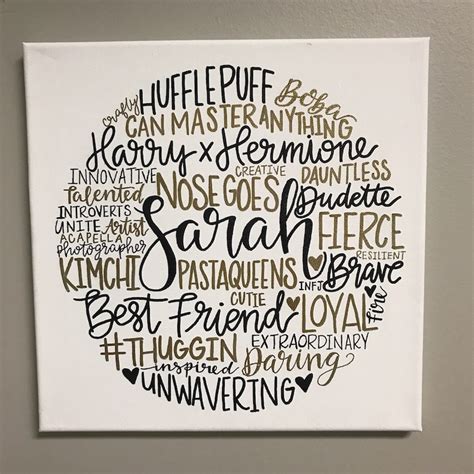 HUFFLEPUFF
crafty
Boba
CAN MASTER ANYTHING
Harry x Hermione
INNOVATIVE
CREATIVE
DAUNTLESS
Talented
NOSE GOES
Dudette
INTROVERTS
UNITE
Artist
Sarah
FIERCE
ACAPELLA
photographer
RESILIENT
KIMCHI
PASTAQUEENS
INFJ
Brave
CUTIE
Best Friend
LOYAL
Fire
#THUGGIN
EXTRAORDINARY
inspired
Daring
UNWAVERING